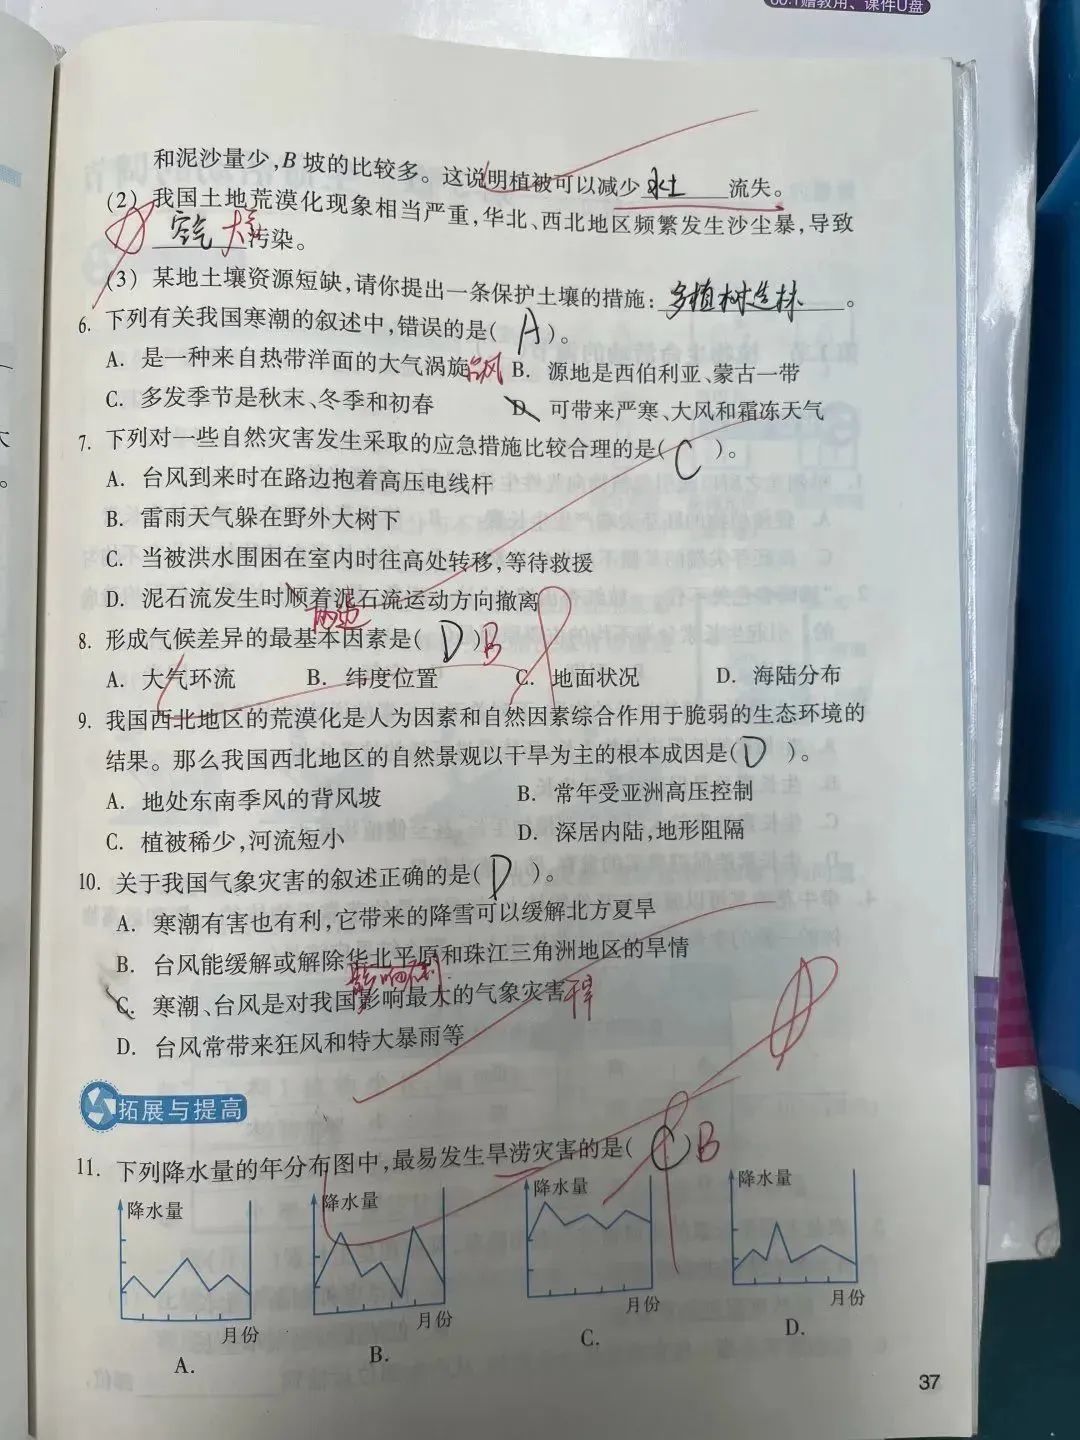 和泥沙量少,B坡的比较多。这说明植被可以减少 水土 流失。
(2) 我国土地荒漠化现象相当严重,华北、西北地区频繁发生沙尘暴,导致
空气 大气 污染。
(3) 某地土壤资源短缺,请你提出一条保护土壤的措施: 多植树造林 。
6. 下列有关我国寒潮的叙述中,错误的是( A )。
A. 是一种来自热带洋面的大气涡旋 台风 B. 源地是西伯利亚、蒙古一带
C. 多发季节是秋末、冬季和初春 D. 可带来严寒、大风和霜冻天气
7. 下列对一些自然灾害发生采取的应急措施比较合理的是( C )。
A. 台风到来时在路边抱着高压电线杆
B. 雷雨天气躲在野外大树下
C. 当被洪水围困在室内时往高处转移,等待救援
D. 泥石流发生时顺着泥石流运动方向撤离
两边
8. 形成气候差异的最基本因素是( D ) B
A. 大气环流 B. 纬度位置 C. 地面状况 D. 海陆分布
9. 我国西北地区的荒漠化是人为因素和自然因素综合作用于脆弱的生态环境的
结果。那么我国西北地区的自然景观以干旱为主的根本成因是( D )。
A. 地处东南季风的背风坡 B. 常年受亚洲高压控制
C. 植被稀少,河流短小 D. 深居内陆,地形阻隔
10. 关于我国气象灾害的叙述正确的是( D )。
A. 寒潮有害也有利,它带来的降雪可以缓解北方夏旱
B. 台风能缓解或解除华北平原和珠江三角洲地区的旱情
影响不到
C. 寒潮、台风是对我国影响最大的气象灾害 干旱
D. 台风常带来狂风和特大暴雨等
拓展与提高
11. 下列降水量的年分布图中,最易发生旱涝灾害的是( C ) B
降水量 降水量 降水量 降水量
月份 月份 月份 月份
A. B. C. D.
37